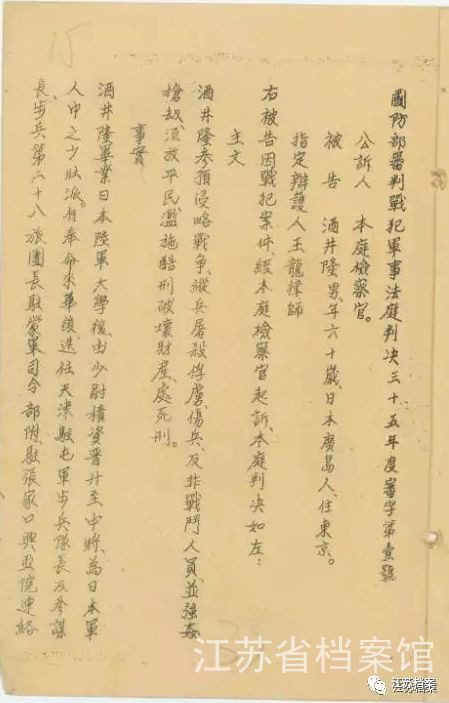 國防部審判戰犯軍事法庭判决三十五年度審字第壹號
公訴人 本庭檢察官。
被告 酒井隆男、年六十歲、日本廣島人、住東京。
指定辯護人王龍律師
右被告因戰犯案件、經本庭檢察官起訴、本庭判决如左:
主文
酒井隆參預侵略戰爭、縱兵屠殺俘虜、傷兵、及非戰鬥人員、並強姦
搶劫、流放平民、濫施酷刑、破壞財產、處死刑。
事實
酒井隆畢業日本陸軍大學後、由少尉積資晉升至中將、為日本軍
人中之少壯派。自奉命來華後、迭任天津駐屯軍步兵隊長、及參謀
長、步兵第二十八旅團長、駐蒙軍司令部附、駐張家口興亞院連絡
15
江苏省档案馆
江苏档案